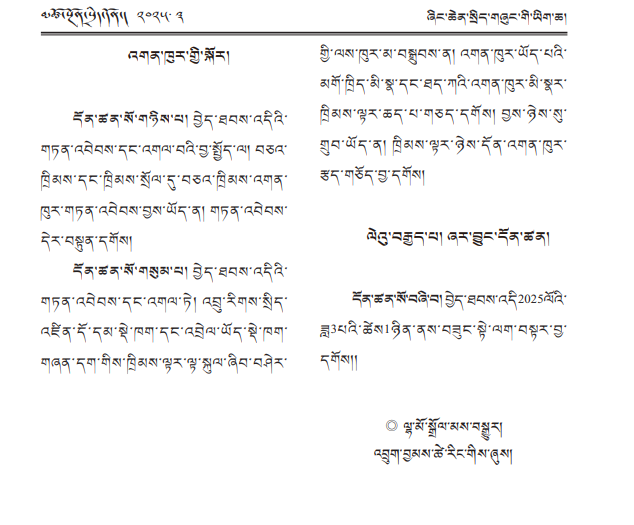 ༢༠༢༥.༣
ཞིང་ཆེན་སྲིད་གཞུང་གི་ཡིག་ཆ།
འགན་ཁུར་གྱི་སྐོར།
དོན་ཚན་སོ་གཉིས་པ། བྱེད་ཐབས་འདིའི་
གཏན་འབེབས་དང་འགལ་བའི་བྱ་སྤྱོད་ལ། བཅའ་
ཁྲིམས་དང་ཁྲིམས་སྲོལ་དུ་བཅའ་ཁྲིམས་འགན་
ཁུར་གཏན་འབེབས་བྱས་ཡོད་ན། གཏན་འབེབས་
དེར་བསྟུན་དགོས།
དོན་ཚན་སོ་གསུམ་པ། བྱེད་ཐབས་འདིའི་
གཏན་འབེབས་དང་འགལ་ཏེ། འབྲུ་རིགས་སྲིད་
འཛིན་དོ་དམ་སྡེ་ཁག་དང་འབྲེལ་ཡོད་སྡེ་ཁག་
གཞན་དག་གིས་ཁྲིམས་ལྟར་ལྟ་སྐུལ་ཞིབ་བཤེར་
གྱི་ལས་ཁུར་མ་བསྒྲུབས་ན། འགན་ཁུར་ཡོད་པའི་
མགོ་ཁྲིད་མི་སྣ་དང་ཐད་ཀའི་འགན་ཁུར་མི་སྣར་
ཁྲིམས་ལྟར་ཆད་པ་གཅད་དགོས། བྱས་ཉེས་སུ་
གྲུབ་ཡོད་ན། ཁྲིམས་ལྟར་ཉེས་དོན་འགན་ཁུར་
རྩད་གཅོད་བྱ་དགོས།
ལེའུ་བརྒྱད་པ། ཞར་བྱུང་དོན་ཚན།
དོན་ཚན་སོ་བཞི་བ། བྱེད་ཐབས་འདི2025ལོའི་
ཟླ3པའི་ཚེས1ཉིན་ནས་བཟུང་སྟེ་ལག་བསྟར་བྱ་
དགོས།།
◎ ལྷ་མོ་སྒྲོལ་མས་བསྒྱུར།
འབྲུག་བྱམས་ཚེ་རིང་གིས་ཞུས།